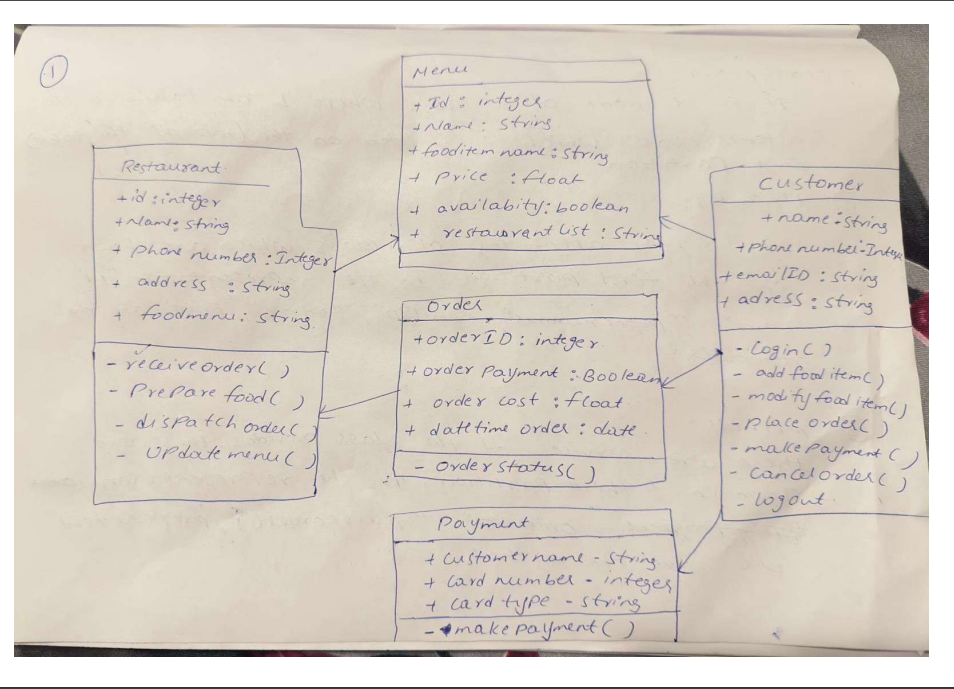 1
Menu
+ Id : integer
+ Name : String
+ fooditem name : String
+ Price : float
+ availabity : boolean
+ restaurant list : String
Restaurant
+ id : integer
+ Name : String
+ phone number : Integer
+ address : String
+ foodmenu : String
- receive order( )
- Prepare food( )
- dispatch order( )
- Update menu( )
Order
+ order ID : integer
+ order Payment : Boolean
+ order cost : float
+ datetime order : date
- Order Status( )
Customer
+ name : String
+ phone number - Intege
+ email ID : String
+ adress : String
- Login( )
- add food item( )
- modify food item( )
- place order( )
- make payment( )
- Cancel order( )
- logout
Payment
+ Customer name - String
+ Card number - integer
+ Card type - String
- make payment( )